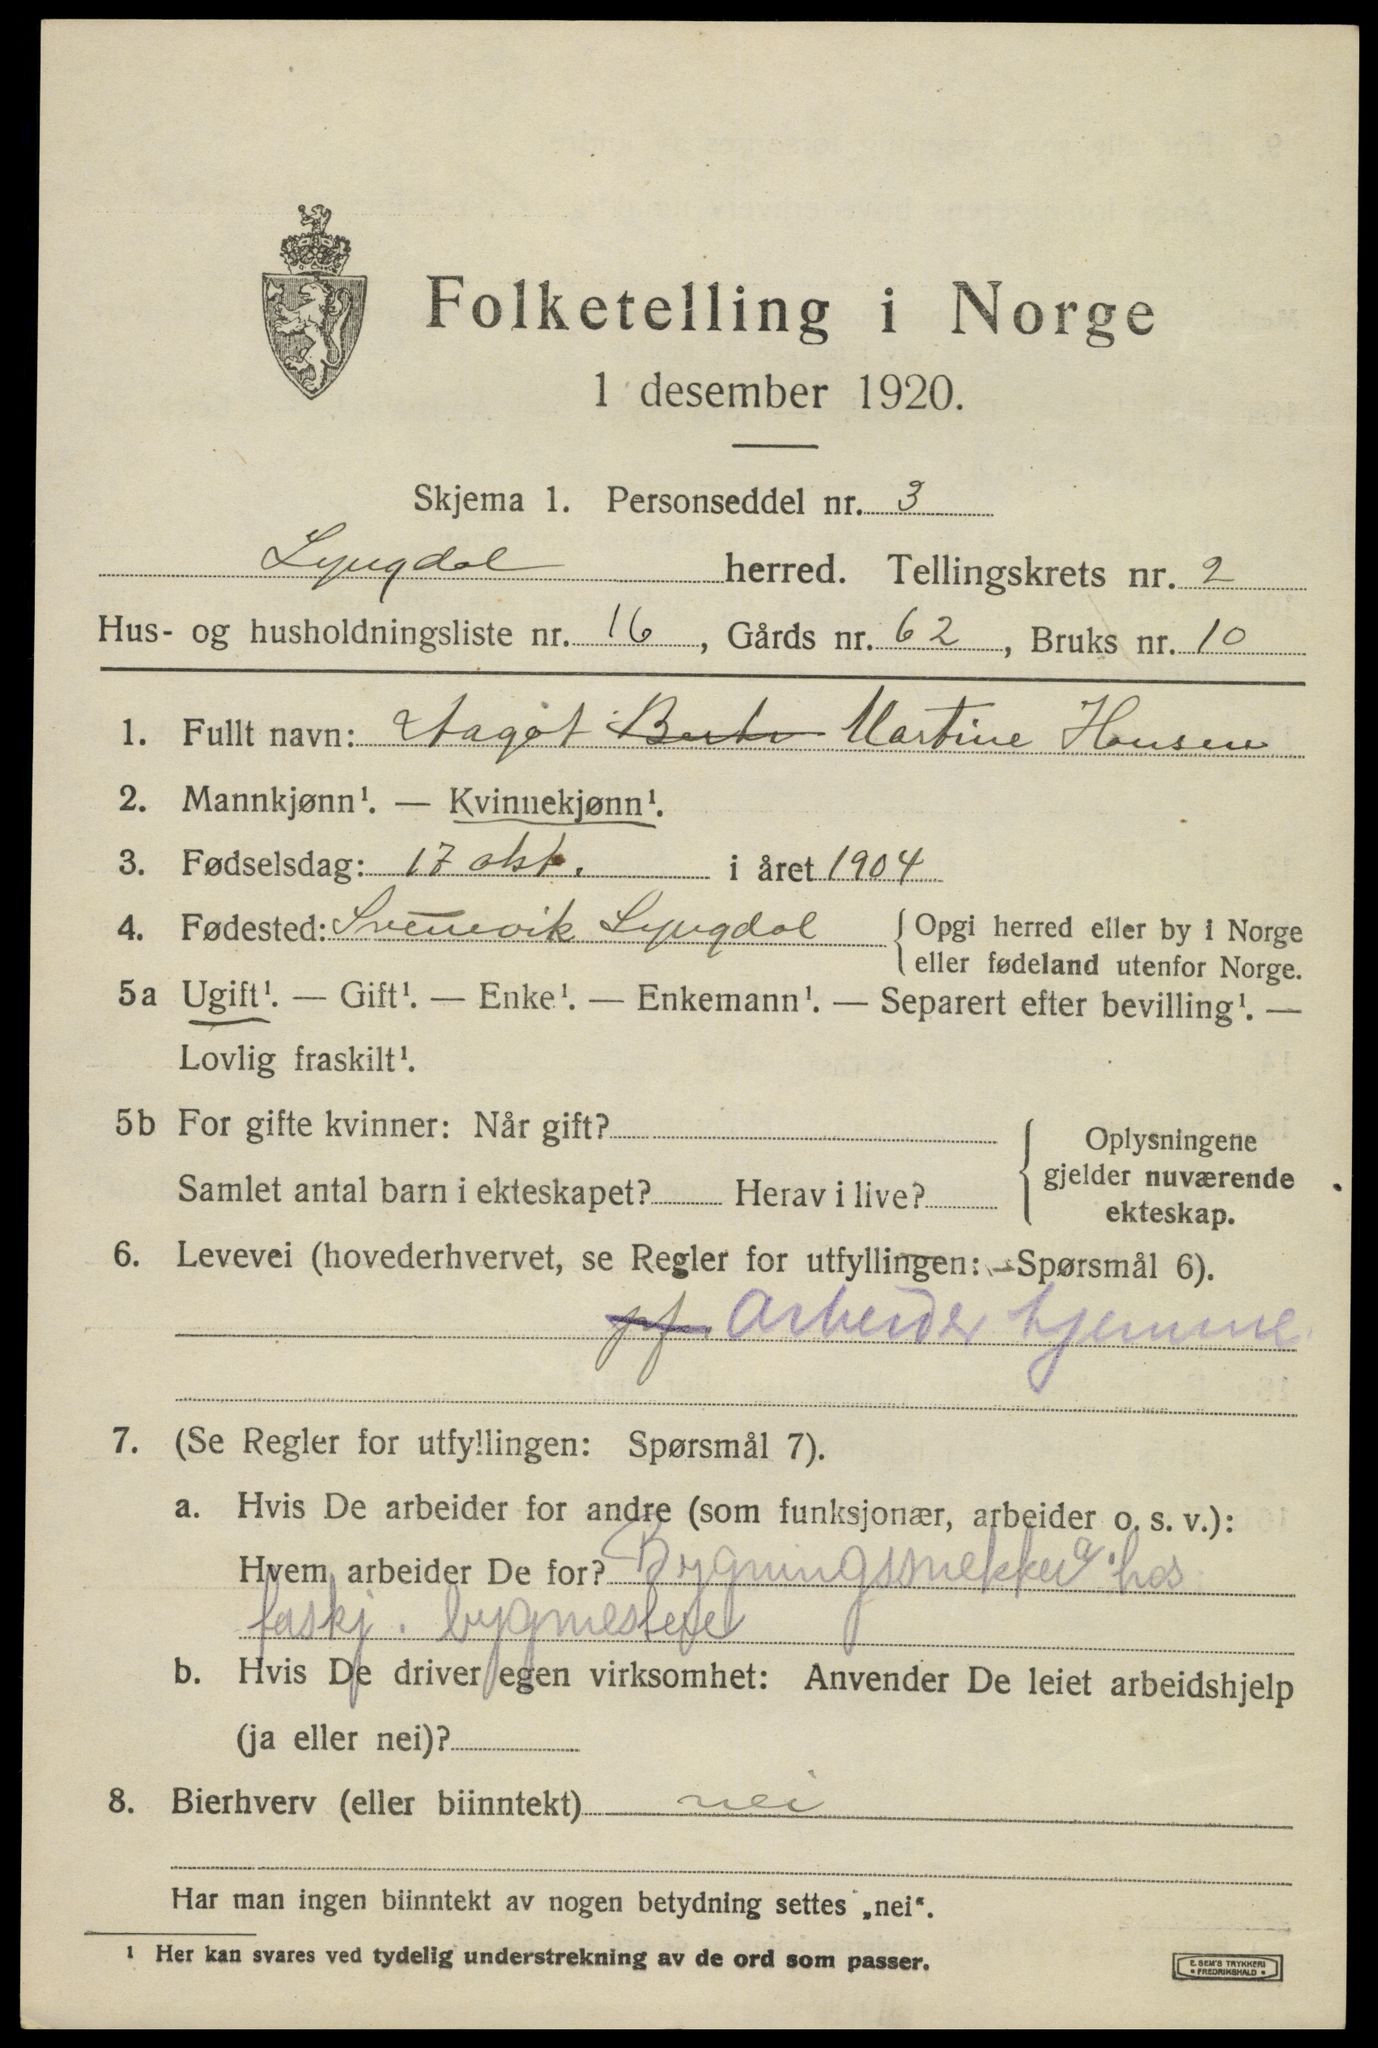 Folketelling i Norge
1 desember 1920.
Skjema 1. Personseddel nr. 3
Lyngdal herred. Tellingskrets nr. 2
Hus- og husholdningsliste nr. 16, Gårds nr. 62, Bruks nr. 10
1. Fullt navn: Aagot Berta Martine Hansen
2. Mannkjønn¹. — Kvinnekjønn¹.
3. Fødselsdag: 17 okt. i året 1904
4. Fødested: Svenevik Lyngdal { Opgi herred eller by i Norge
eller fødeland utenfor Norge.
5a Ugift¹. — Gift¹. — Enke¹. — Enkemann¹. — Separert efter bevilling¹. —
Lovlig fraskilt¹.
5b For gifte kvinner: Når gift?
Samlet antal barn i ekteskapet? Herav i live?
{ Oplysningene
gjelder nuværende
ekteskap.
6. Levevei (hovederhvervet, se Regler for utfyllingen: Spørsmål 6).
Arbeider hjemme
7. (Se Regler for utfyllingen: Spørsmål 7).
a. Hvis De arbeider for andre (som funksjonær, arbeider o. s. v.):
Hvem arbeider De for? Bygningssnekker a. hos
forskj. bygmestere
b. Hvis De driver egen virksomhet: Anvender De leiet arbeidshjelp
(ja eller nei)?
8. Bierhverv (eller biinntekt) nei
Har man ingen biinntekt av nogen betydning settes „nei“.
¹ Her kan svares ved tydelig understrekning av de ord som passer.
E. SEM'S TRYKKERI
• FREDRIKSHALD •